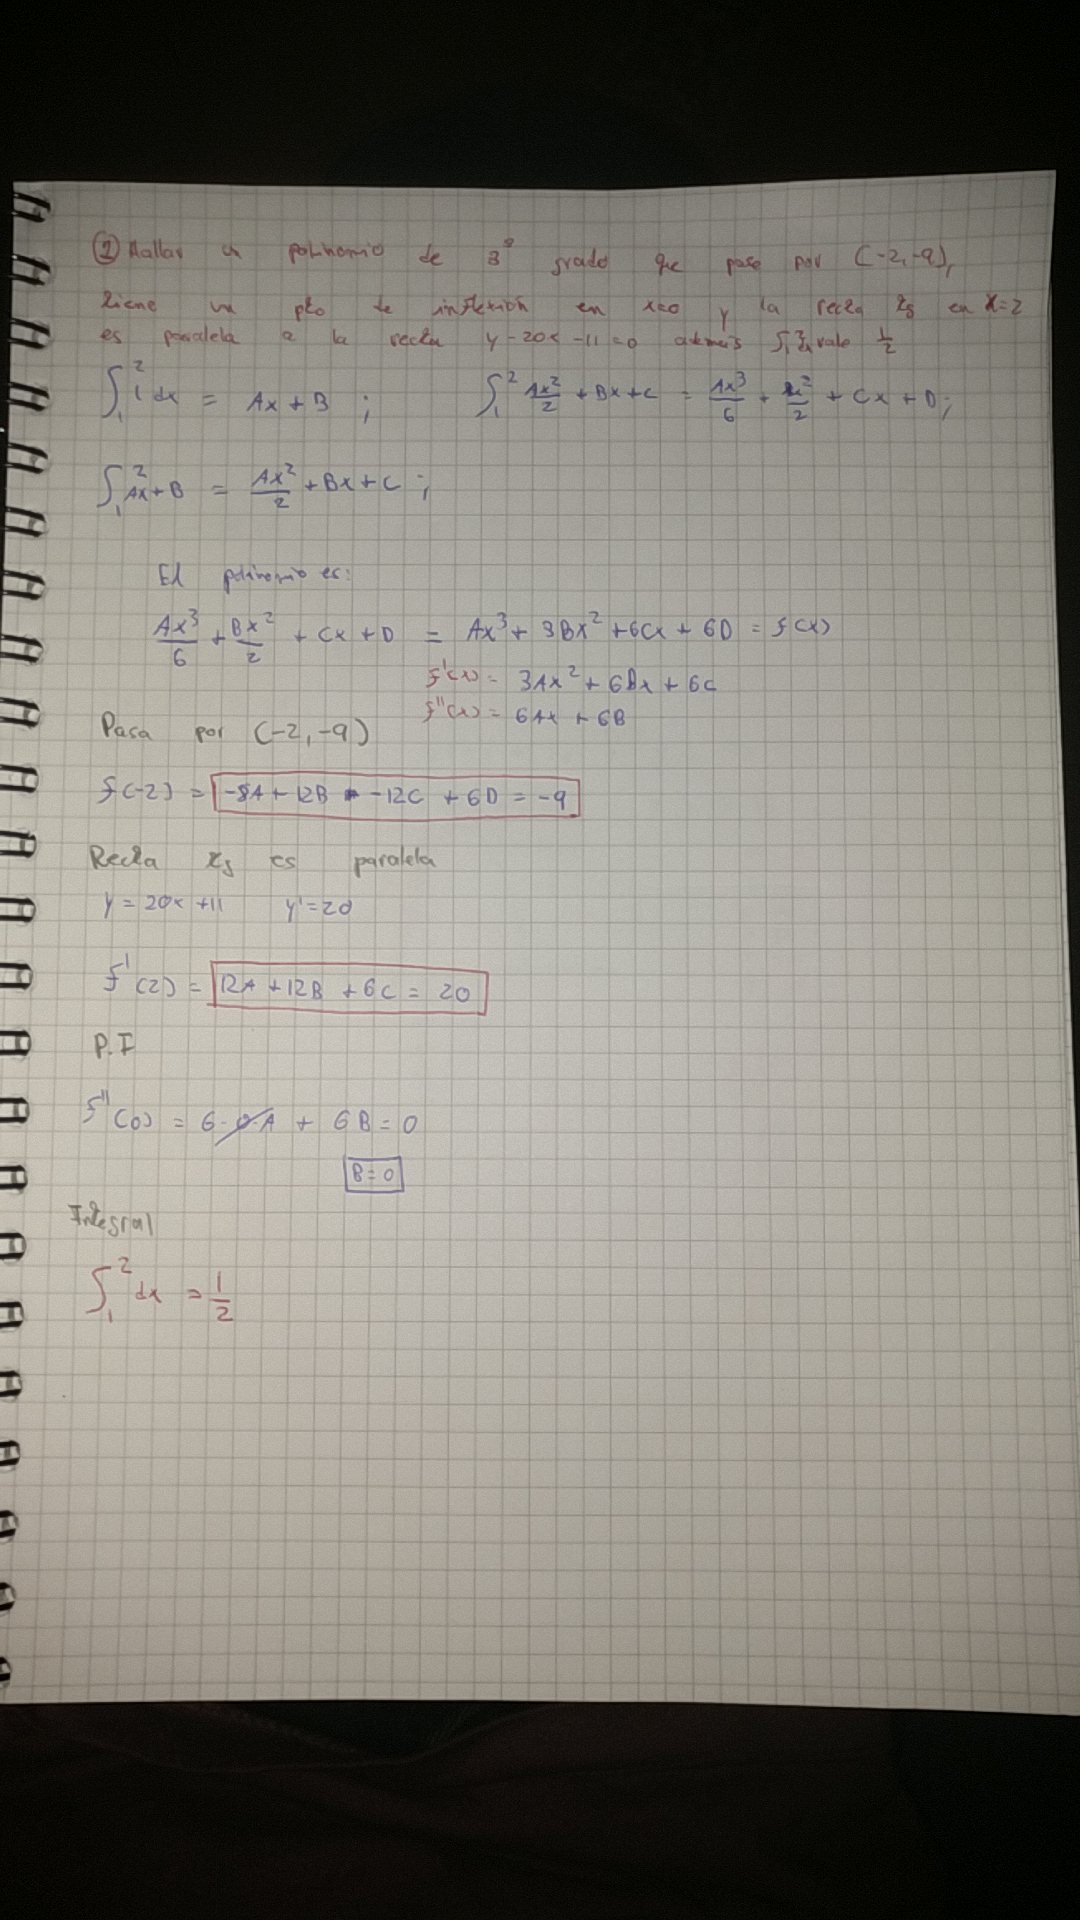 ② Hallar un polinomio de 3º grado que pase por (-2,-9),
tiene un pto de inflexión en x=0 y la recta tg en x=2
es paralela a la recta y-20x-11=0 además ∫₁² vale 1/2
∫₁² 1 dx = Ax+B ; ∫₁² Ax²/2 + Bx+C = Ax³/6 + x²/2 + Cx + D;
∫₁² Ax+B = Ax²/2 + Bx+C ;
El polinomio es:
Ax³/6 + Bx²/2 + Cx+D = Ax³+ 3Bx²+6Cx+6D = f(x)
f'(x)= 3Ax²+6Bx+6C
f''(x)= 6Ax + 6B
Pasa por (-2,-9)
f(-2) = -8A+12B -12C +6D = -9
Recta tg es paralela
y = 20x +11 y'=20
f'(2) = 12A+12B +6C = 20
P.I
f''(0) = 6·0·A + 6B=0
B=0
Integral
∫₁² dx = 1/2